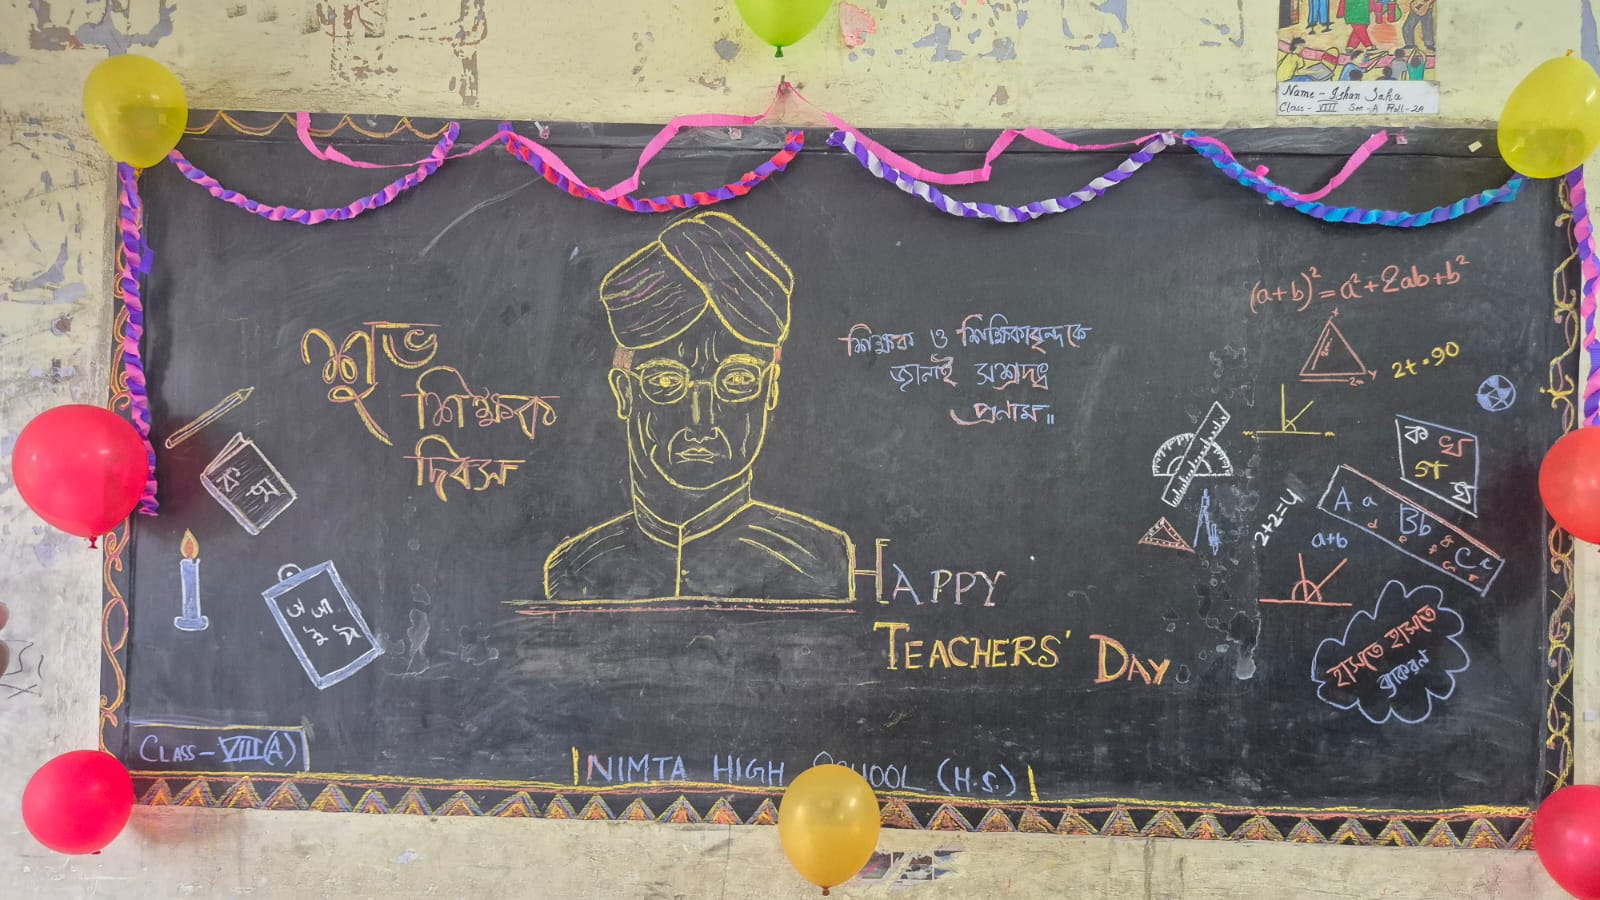 Name - Ishan Saha
Class - VIII Sec - A Roll - 24
শুভ
শিক্ষক
দিবস
শিক্ষক ও শিক্ষিকাবৃন্দকে
জানাই সশ্রদ্ধ
প্রণাম॥
(a+b)² = a² + 2ab + b²
2m
2t = 90
ক খ
গ ঘ
A a Bb Cc
2+2=4
a+b
অ আ
ই ঈ
HAPPY
TEACHERS' DAY
হাসতে হাসতে
ব্যাকরণ
CLASS - VIII (A)
NIMTA HIGH SCHOOL (H.S.)